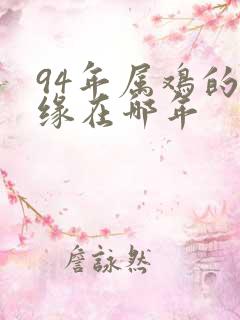 94年属鸡的
缘在哪年
詹詠然